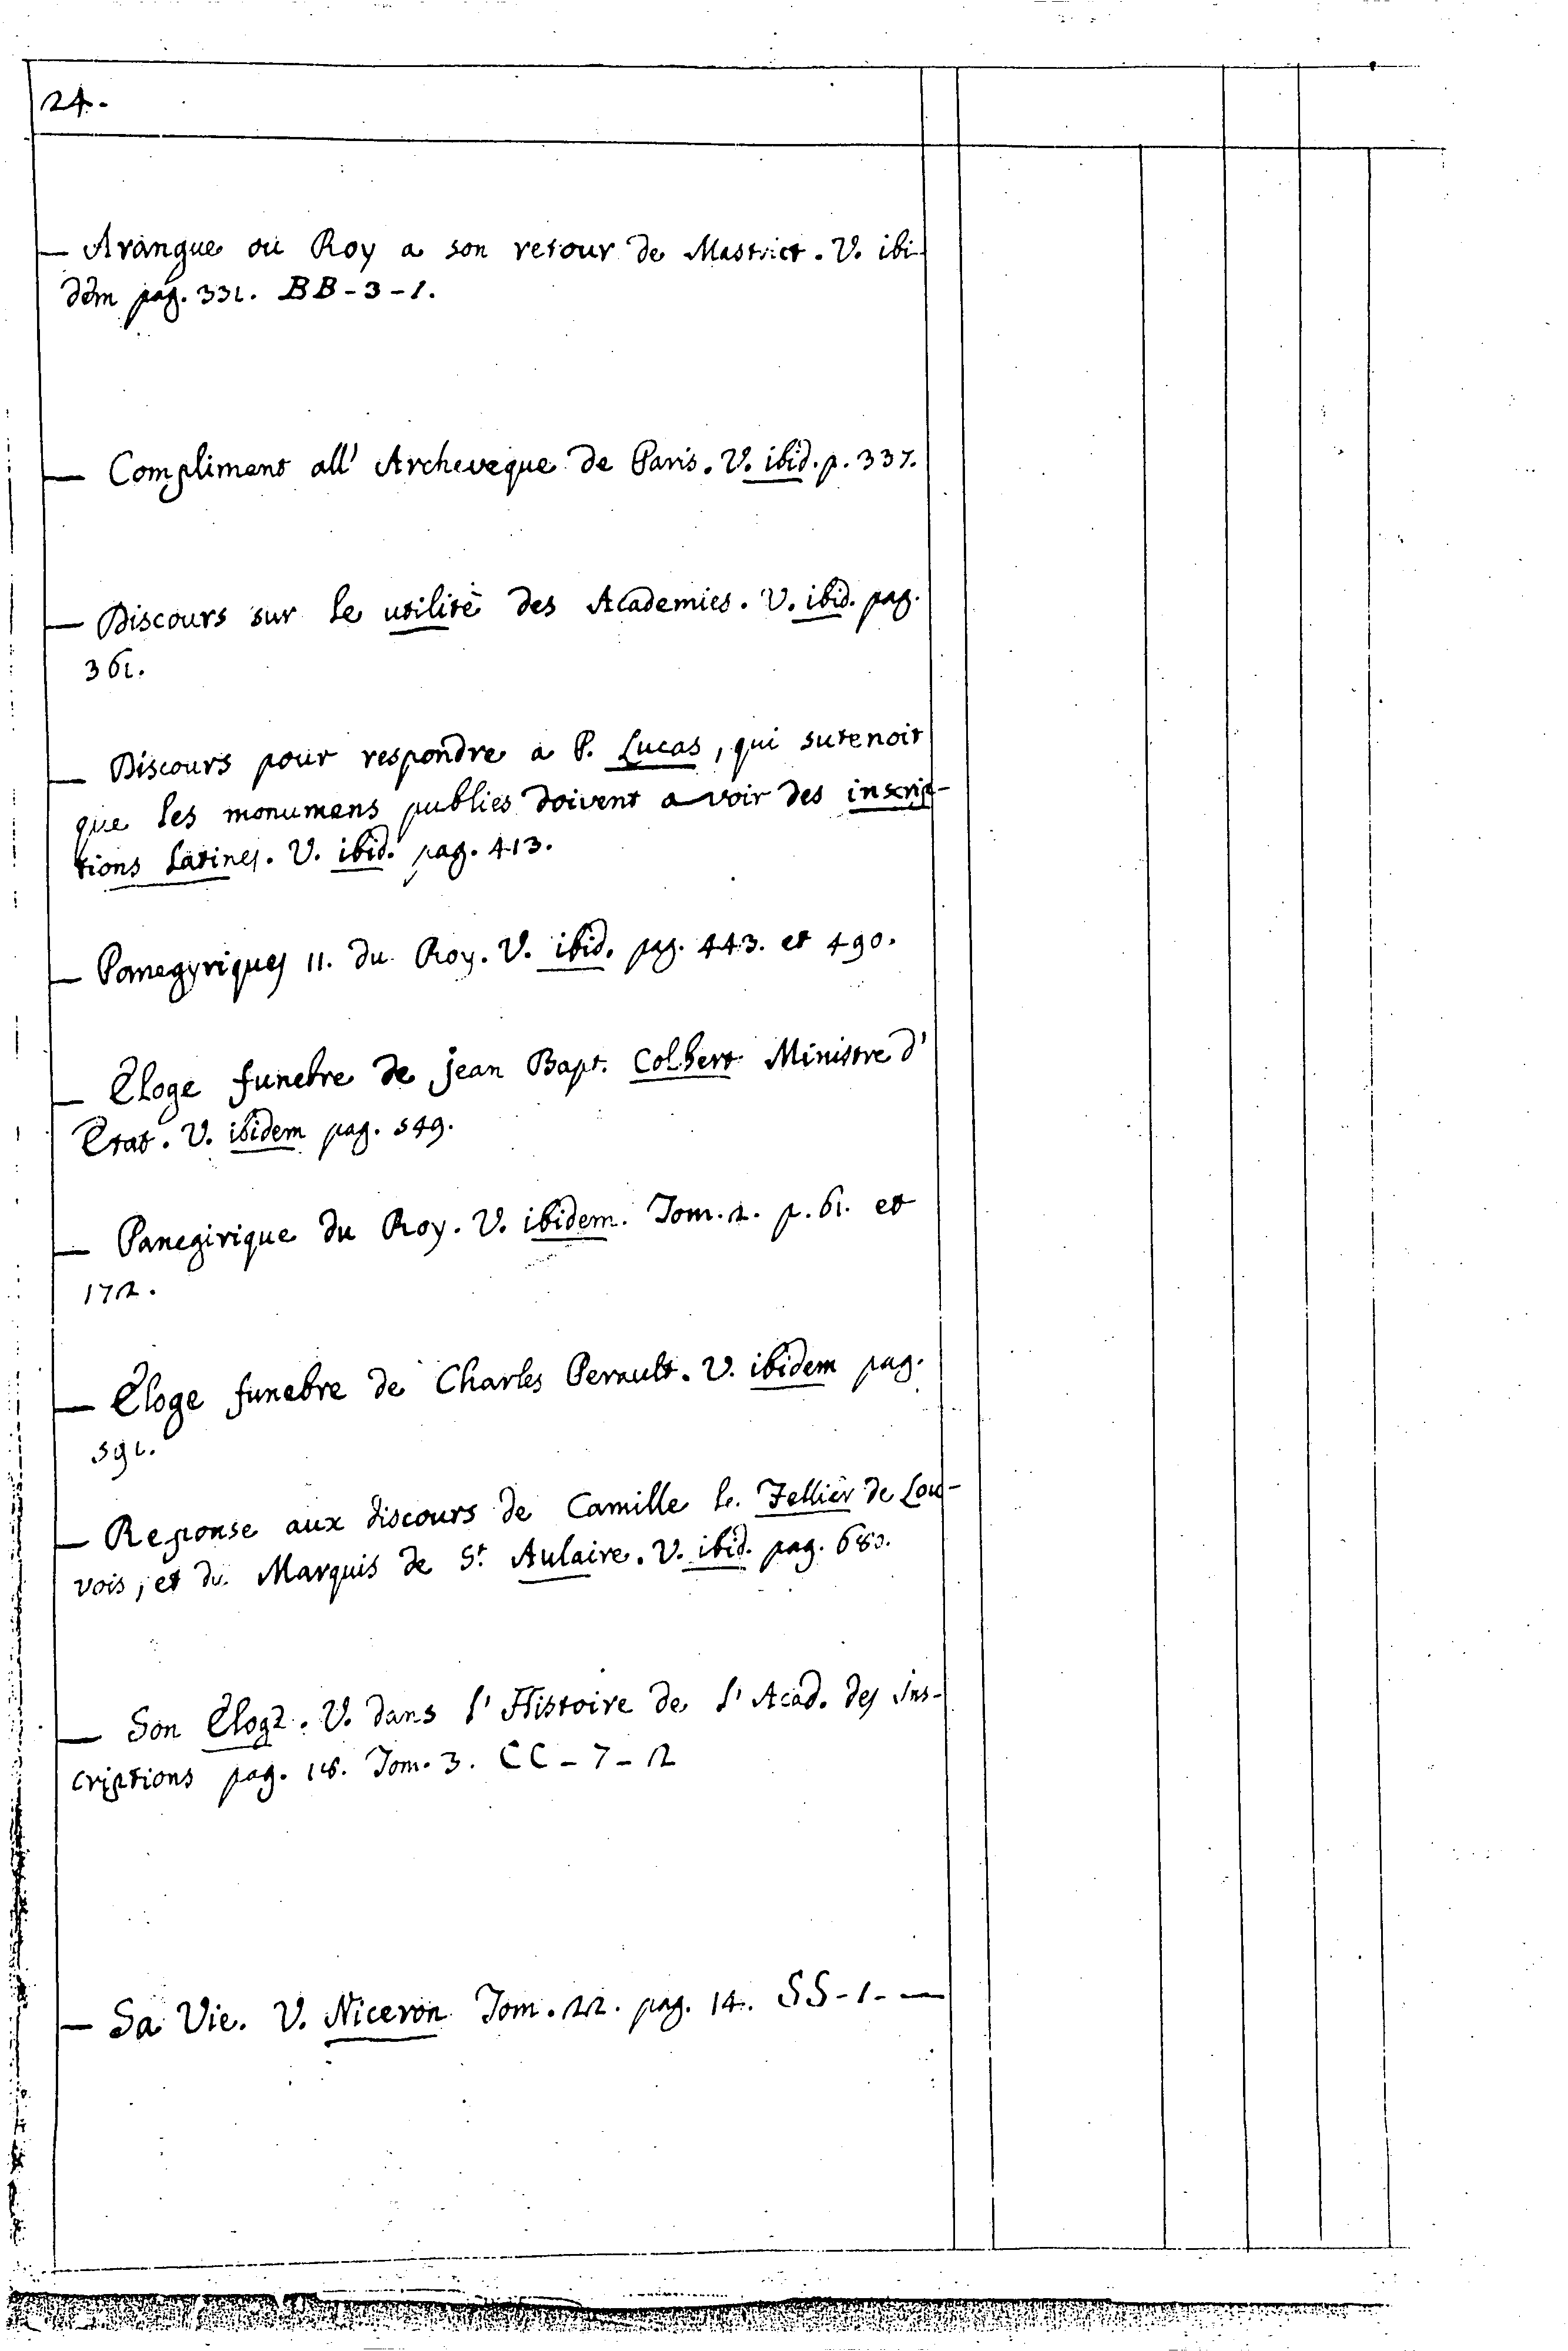 24.
— Arangue oú Roy a son retour de Mastrict. V. ibi-
dem pag. 331. BB-3-1.
— Compliment all' Archeveque de Paris. V. ibid. p. 337.
— Discours sur le utilitè des Academies. V. ibid. pag.
361.
— Discours pour respondre a P. Lucas, qui sutenoit
que les monumens publics doivent avoir des inscrip-
tions Latines. V. ibid. pag. 413.
— Panegyriques II. du Roy. V. ibid. pag. 443. et 490.
— Eloge funebre de jean Bapt. Colbert Ministre d'
Etat. V. ibidem pag. 549.
— Panegirique du Roy. V. ibidem. Tom. 2. p. 61. et
172.
— Eloge funebre de Charles Perrault. V. ibidem pag.
591.
— Reponse aux discours de Camille le Tellier de Lou-
vois, et du Marquis de St. Aulaire. V. ibid. pag. 680.
— Son Eloge. V. dans l' Histoire de l' Acad. des Ins-
criptions pag. 18. Tom. 3. CC-7-2
— Sa Vie. V. Niceron Tom. 22. pag. 14. SS-1-—